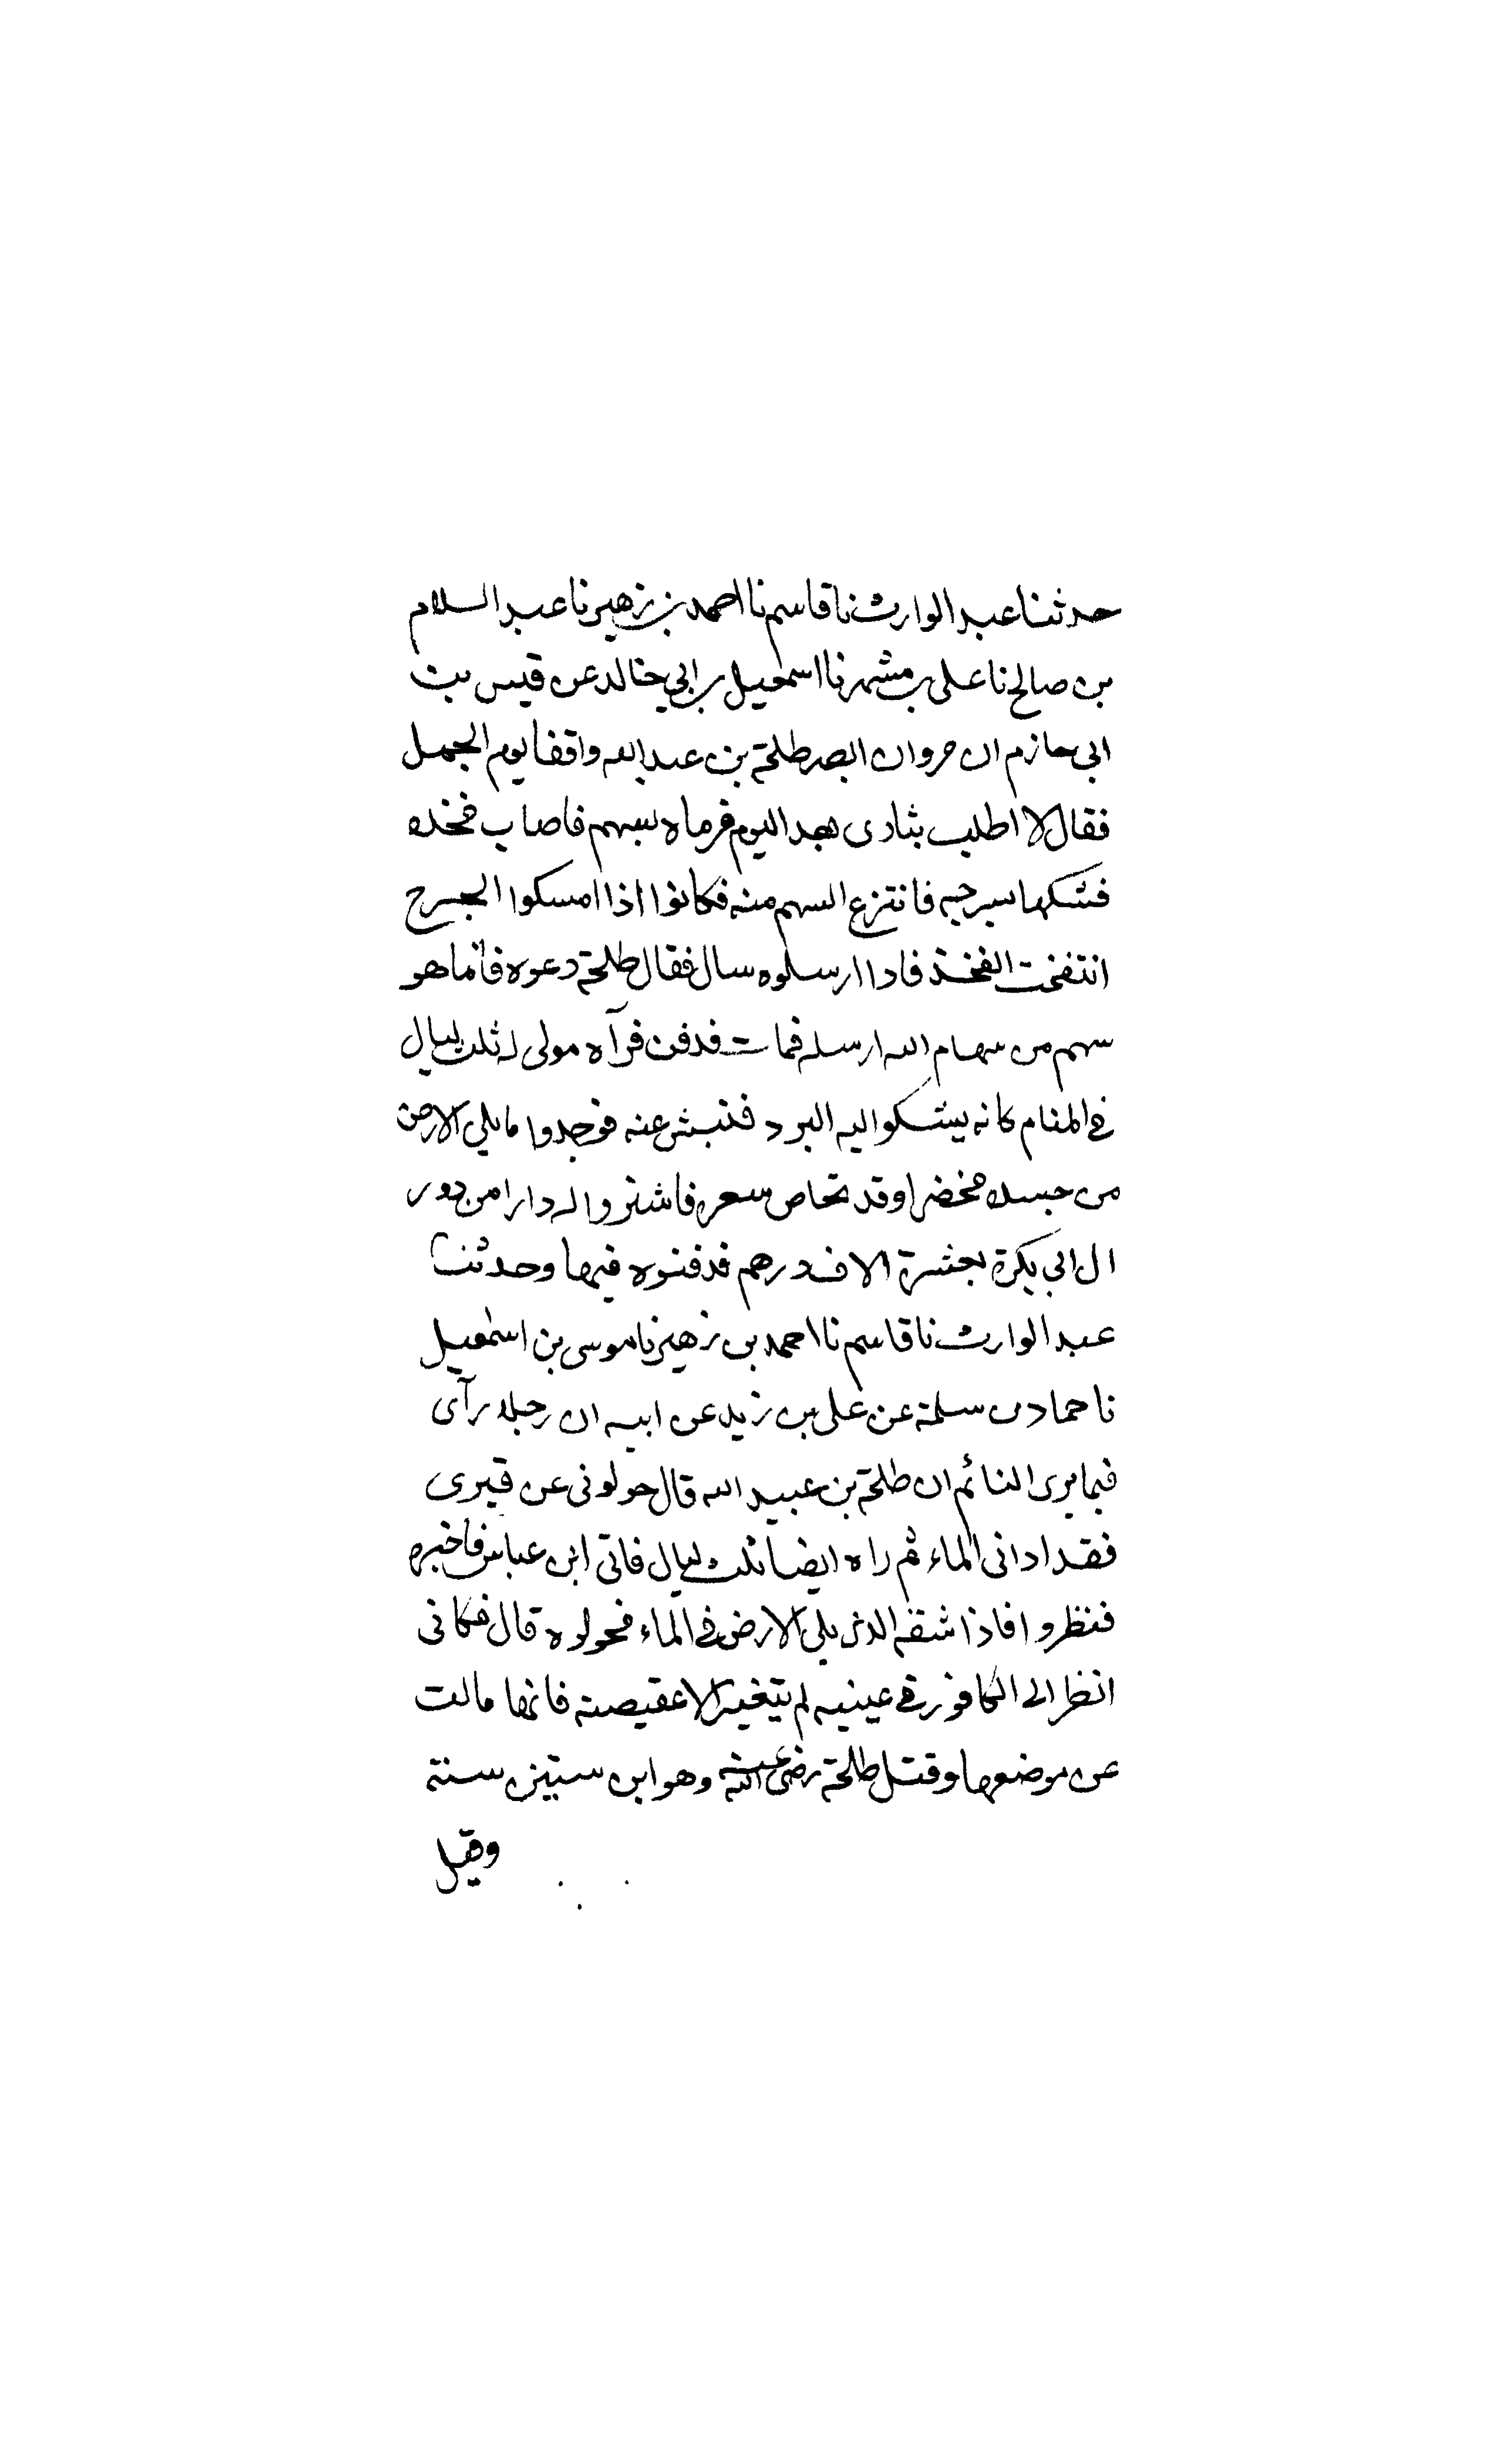 حدثنا عبد الوارث نا قاسم نا احمد بن زهير نا عبد السلام
بن صالح نا على بن مشهر نا اسمعيل بن ابي خالد عن قيس بن
ابى حازم ان مروان ابصر طلحة بن عبد الله واقفا يوم الجمل
فقال لا اطلب بثارى بعد اليوم فرماه بسهم فاصاب فخذه
فشكها بسرجه فانتزع السهم منه فكانوا اذا امسكوا الجرح
انتفخت الفخذ فاذا ارسلوه سال فقال طلحة دعوه فانما هو
سهم من سهام الله ارسله فمات فدفن فرآه مولى له ثلث ليال
فى المنام كانه يشكو اليه البرد فنبش عنه فوجدوا ما يلى الارض
من جسده مخضرا وقد تحاص شعره فاشتروا له دارا من دور
ال ابى بكرة بعشرة الاف درهم فدفنوه فيها وحدثنا
عبد الوارث نا قاسم نا احمد بن زهير نا موسى بن اسمعيل
نا حماد بن سلمة عن على بن زيد عن ابيه ان رجلا رآى
فيما يرى النائم ان طلحة بن عبيد الله قال حولونى عن قبرى
فقد اذانى الماء ثم راه ايضا ثلث ليال فاتى ابن عباس فاخبره
فنظروا فاذا شقه الذى يلى الارض فى الماء فحولوه قال فكانى
انظر الى الكافور فى عينيه لم يتغير الا عقيصته فانها مالت
عن موضعها وقتل طلحة رضى الله عنه وهو ابن ستين سنة
وقيل